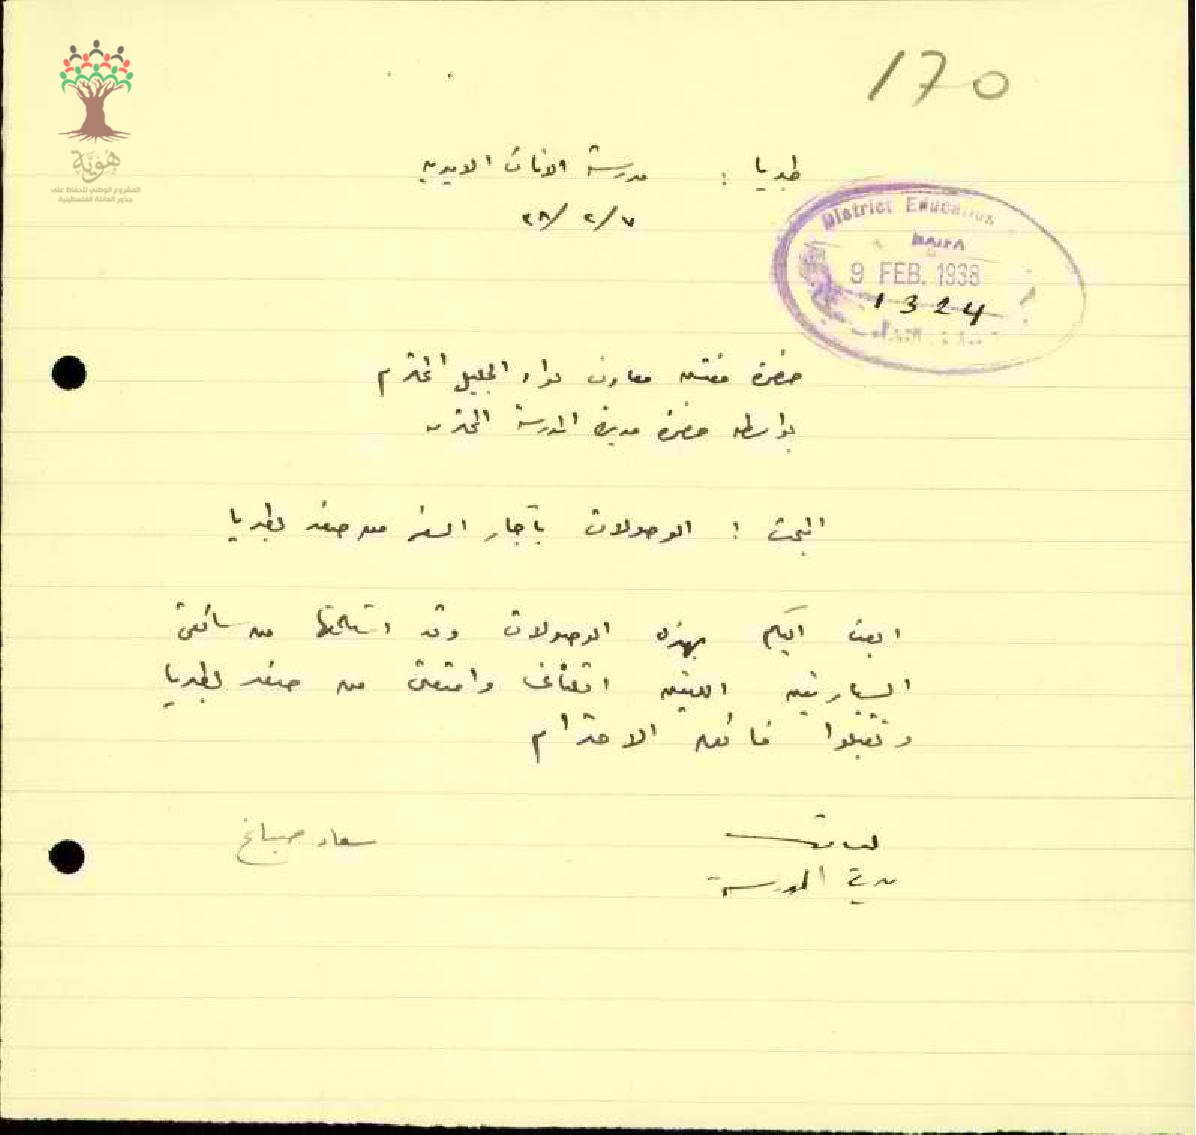 170
هُوِيَّة
المشروع الوطني للحفاظ على
جذور العائلة الفلسطينية
طبريا : مدرسة الاناث الاميرية
٣٨/٢/٧
District Education
HAIFA
9 FEB. 1938
1324
حضرة مفتش معارف لواء الجليل المحترم
بواسطة حضرة مديرة المدرسة المحترمة
البحث : الوصولات بآجار السفر من صفد لطبريا
ابعث اليكم بهذه الوصولات وقد استلمتها من سائقي
السيارتين اللتين اقلتاني وامتعتي من صفد لطبريا
وتقبلوا فائق الاحترام
سعاد صباغ
مديرة المدرسة